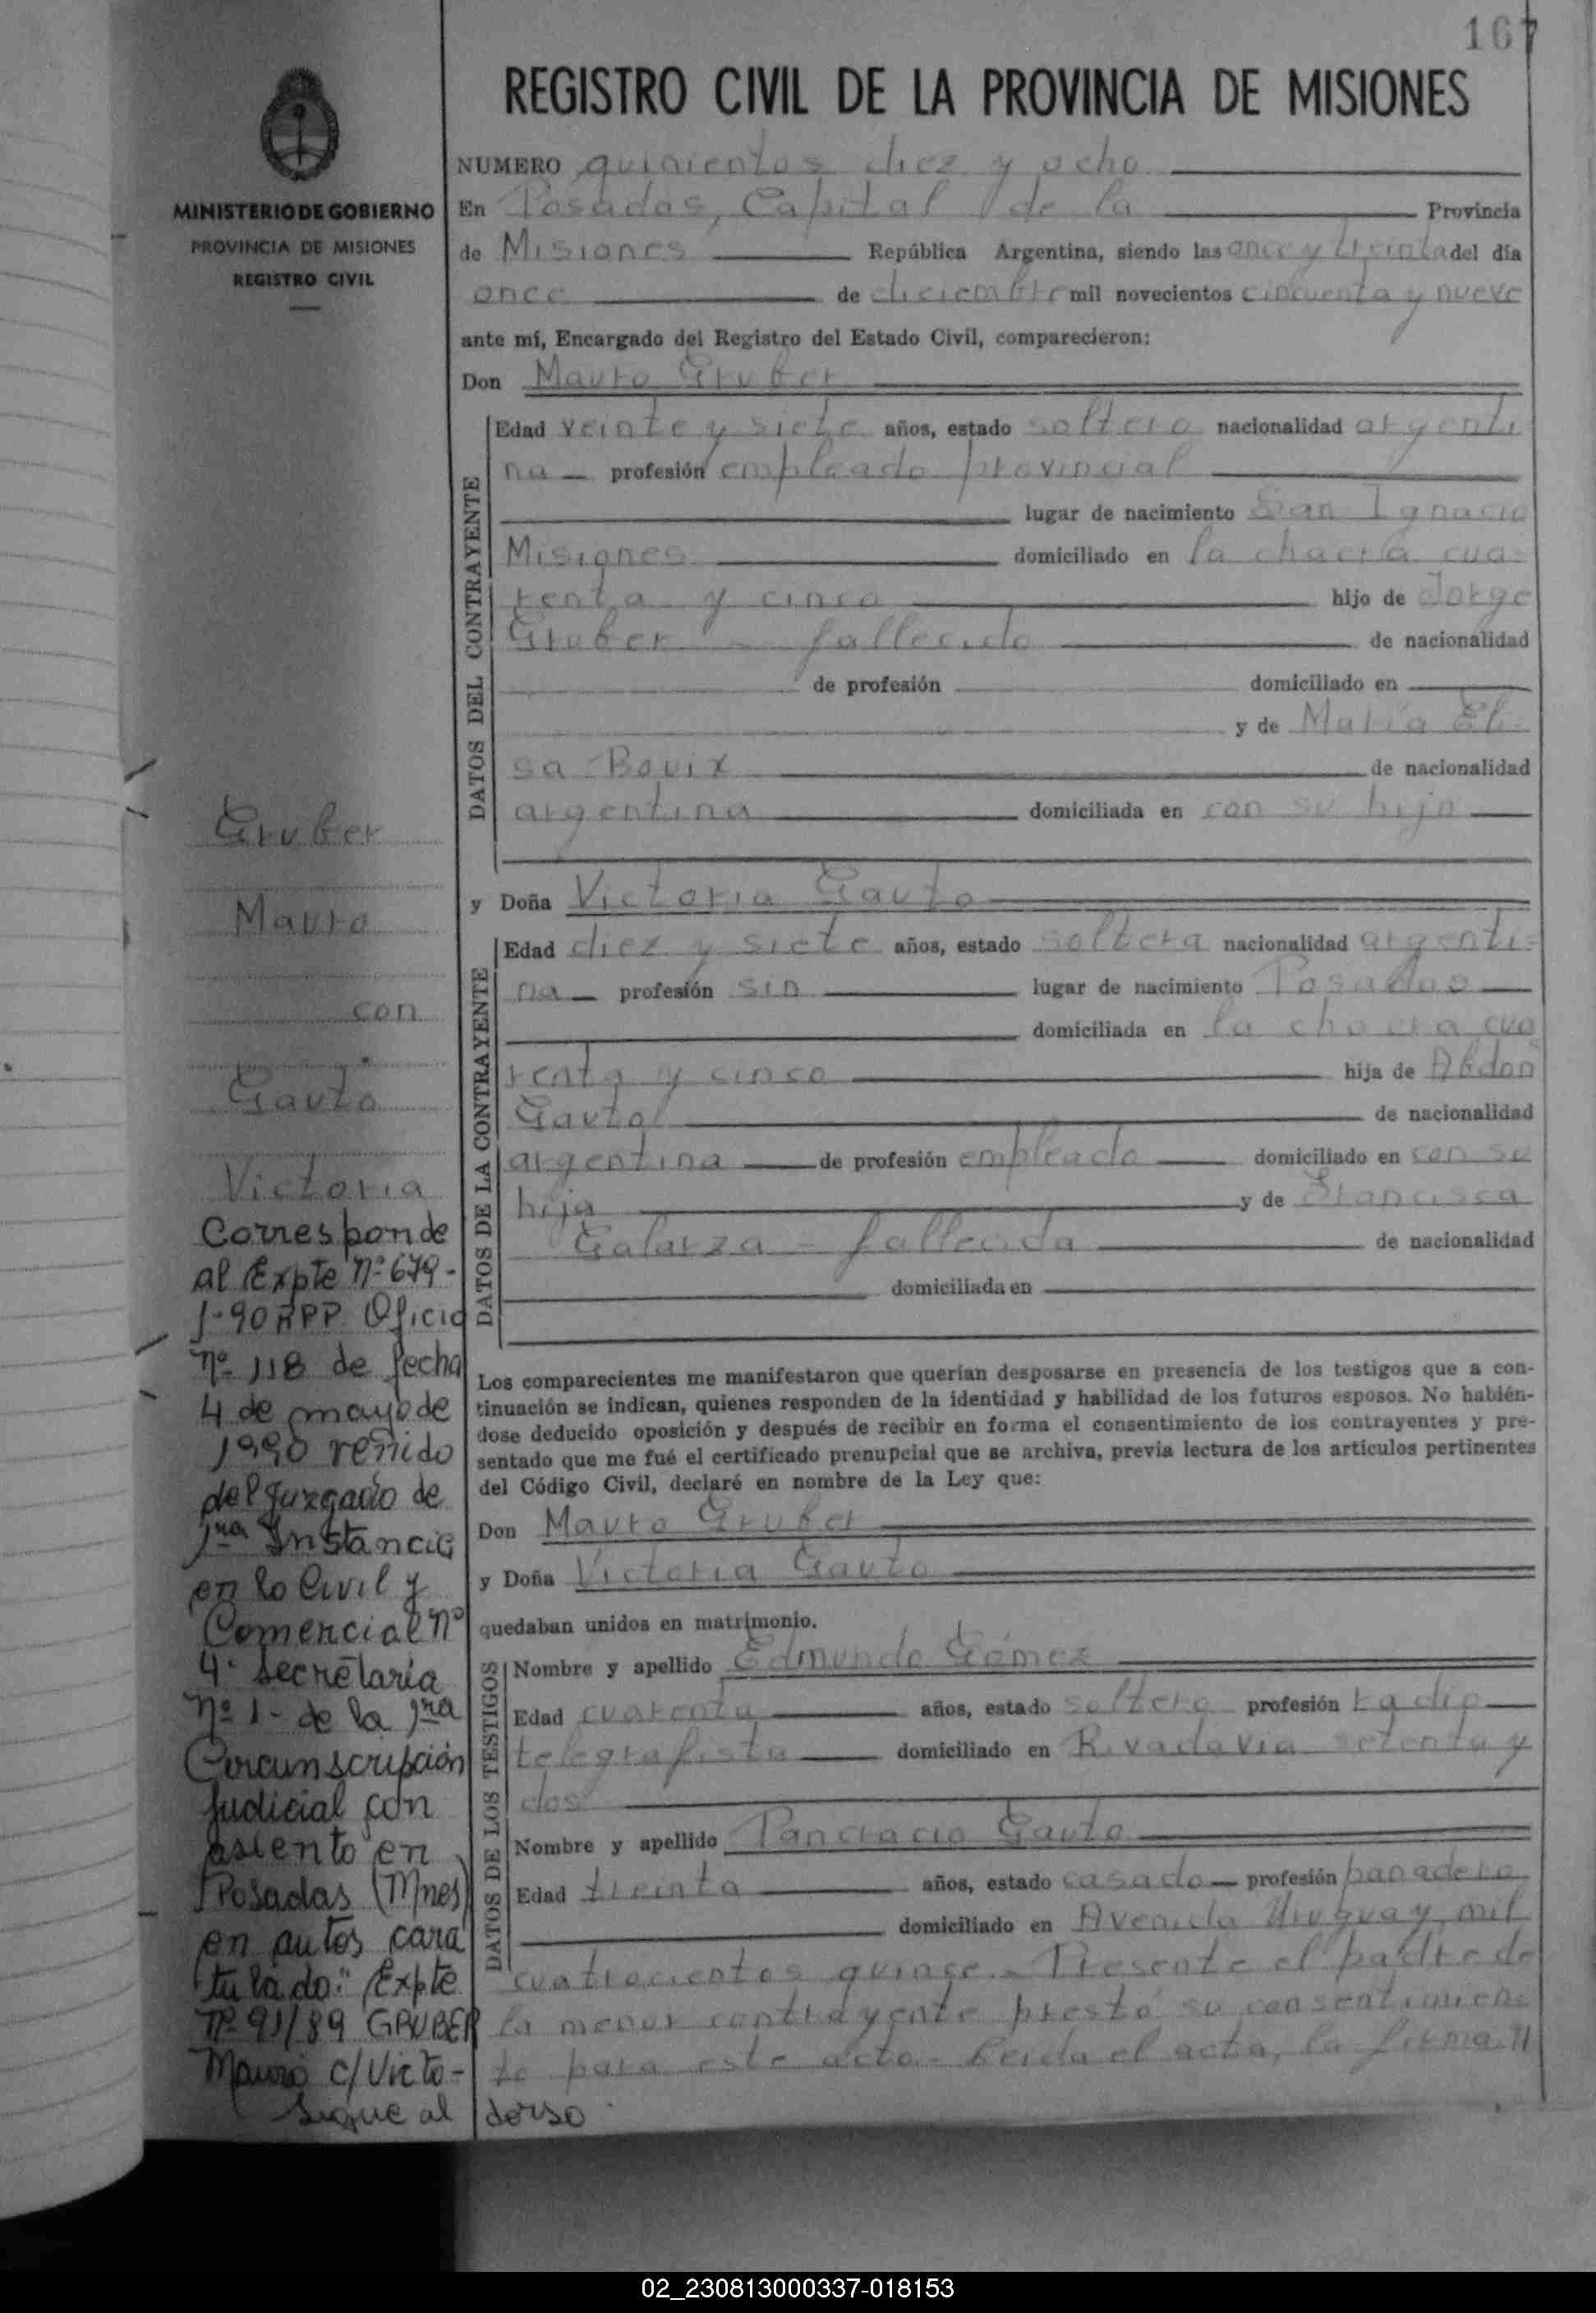 167
REGISTRO CIVIL DE LA PROVINCIA DE MISIONES
MINISTERIO DE GOBIERNO
PROVINCIA DE MISIONES
REGISTRO CIVIL
NUMERO quinientos diez y ocho
En Posadas, Capital de la Provincia
de Misiones República Argentina, siendo las once y treinta del día
once de diciembre mil novecientos cincuenta y nueve
ante mí, Encargado del Registro del Estado Civil, comparecieron:
Don Mauro Gruber
DATOS DEL CONTRAYENTE
Edad veinte y siete años, estado soltero nacionalidad argenti
na profesión empleado provincial
lugar de nacimiento San Ignacio
Misiones domiciliado en la chacra cua-
renta y cinco hijo de Jorge
Gruber - fallecido de nacionalidad
de profesión domiciliado en
y de María Eli-
sa Bouix de nacionalidad
argentina domiciliada en con su hijo
y Doña Victoria Gauto
DATOS DE LA CONTRAYENTE
Edad diez y siete años, estado soltera nacionalidad argenti-
na profesión sin lugar de nacimiento Posadas
domiciliada en la chacra cua
renta y cinco hija de Abdon
Gauto de nacionalidad
argentina de profesión empleado domiciliado en con su
hija y de Francisca
Galarza - fallecida de nacionalidad
domiciliada en
Los comparecientes me manifestaron que querían desposarse en presencia de los testigos que a con-
tinuación se indican, quienes responden de la identidad y habilidad de los futuros esposos. No habién-
dose deducido oposición y después de recibir en forma el consentimiento de los contrayentes y pre-
sentado que me fué el certificado prenupcial que se archiva, previa lectura de los artículos pertinentes
del Código Civil, declaré en nombre de la Ley que:
Don Mauro Gruber
y Doña Victoria Gauto
quedaban unidos en matrimonio.
DATOS DE LOS TESTIGOS
Nombre y apellido Edmundo Gómez
Edad cuarenta años, estado soltero profesión radio
telegrafista domiciliado en Rivadavia setenta y
dos
Nombre y apellido Pancracio Gauto
Edad treinta años, estado casado profesión panadero
domiciliado en Avenida Uruguay mil
cuatrocientos quince. Presente el padre de
la menor contrayente prestó su consentimien-
to para este acto - Leida el acta, la firman
Gruber
Mauro
con
Gauto
Victoria
Corresponde
al Expte Nº 679-
1-90 RPP. Oficio
nº 118 de fecha
4 de mayo de
1990 remido
del Juzgado de
1ra Instancia
en lo Civil y
Comercial nº
4. secretaría
nº 1- de la 1ra
Circunscripción
Judicial con
asiento en
Posadas (Mnes)
en autos cara
tulado: "Expte
nº 91/89 GRUBER
Mauro c/ Victo-
Sigue al dorso
02_230813000337-018153